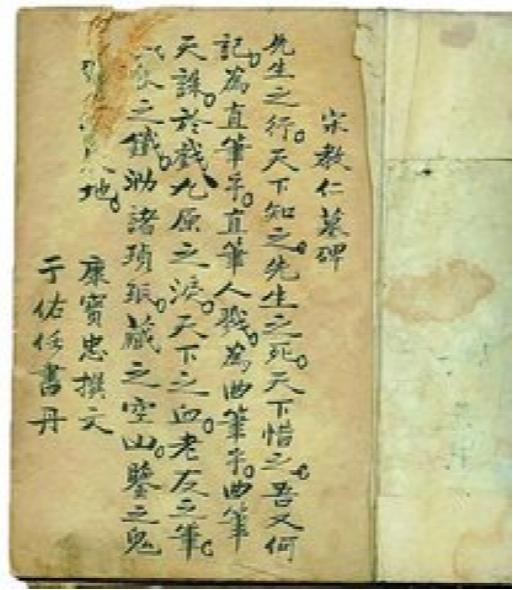 宋教仁墓碑
先生之行。天下知之。先生之死。天下惜之。吾又何
記。為直筆乎。直筆人戮。為曲筆乎。曲筆
天誅。於戲九原之淚。天下之血。老友之筆。
之鐵。泐諸瑱珉。藏之空山。鑒之鬼
地。
康寶忠撰文
于佑任書丹